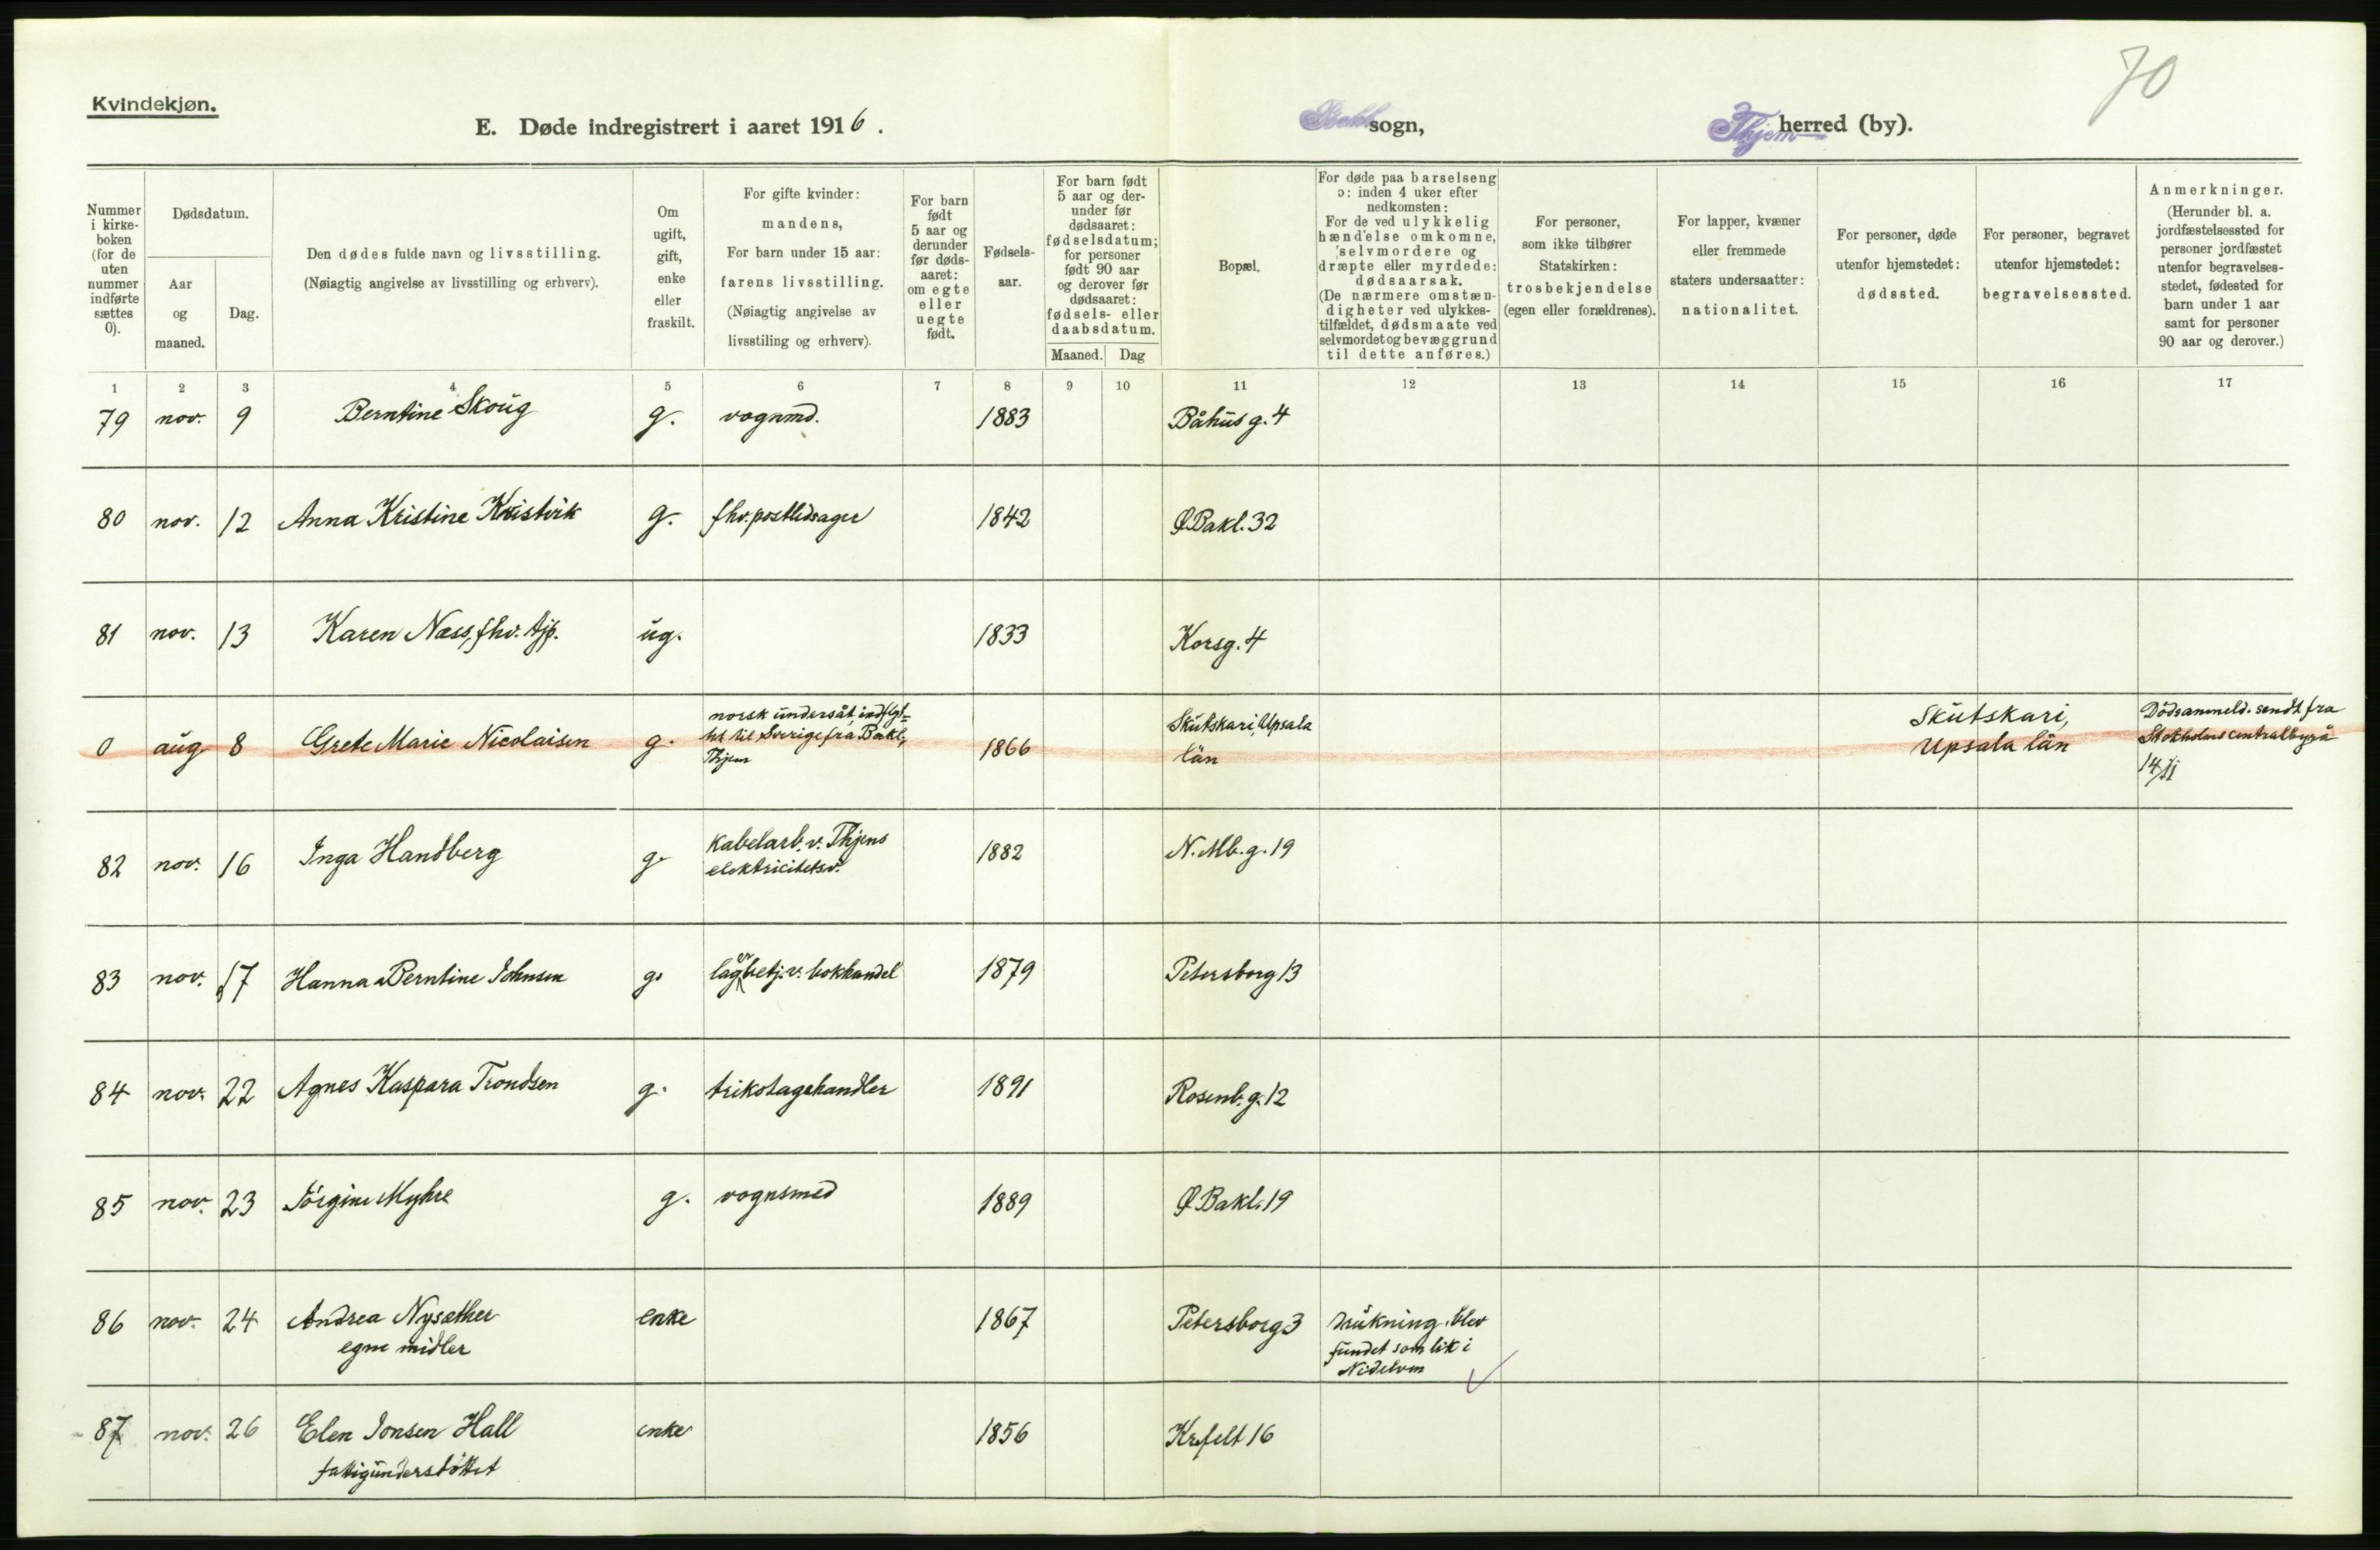 70
Kvindekjøn.
E. Døde indregistrert i aaret 1916. Bakl sogn, Thjem herred (by).
Nummer i kirke- boken (for de uten nummer indførte sættes 0).
Dødsdatum.
Aar og maaned.
Dag.
Den dødes fulde navn og livsstilling.
(Nøiagtig angivelse av livsstilling og erhverv).
Om ugift, gift, enke eller fraskilt.
For gifte kvinder:
mandens,
For barn under 15 aar:
farens livsstilling.
(Nøiagtig angivelse av
livsstiling og erhverv).
For barn født 5 aar og derunder før døds- aaret: om egte eller uegte født.
Fødsels- aar.
For barn født 5 aar og der- under før dødsaaret: fødselsdatum; for personer født 90 aar og derover før dødsaaret: fødsels- eller daabsdatum.
Maaned. Dag
Bopæl.
For døde paa barselseng
ɔ: inden 4 uker efter
nedkomsten:
For de ved ulykkelig
hændelse omkomne,
selvmordere og
dræpte eller myrdede:
dødsaarsak.
(De nærmere omstæn-
digheter ved ulykkes-
tilfældet, dødsmaate ved
selvmordet og bevæggrund
til dette anføres.)
For personer,
som ikke tilhører
Statskirken:
trosbekjendelse
(egen eller forældrenes).
For lapper, kvæner
eller fremmede
staters undersaatter:
nationalitet.
For personer, døde
utenfor hjemstedet:
dødssted.
For personer, begravet
utenfor hjemstedet:
begravelsessted.
Anmerkninger.
(Herunder bl. a.
jordfæstelsessted for
personer jordfæstet
utenfor begravelses-
stedet, fødested for
barn under 1 aar
samt for personer
90 aar og derover.)
1 2 3 4 5 6 7 8 9 10 11 12 13 14 15 16 17
79 nov. 9 Berntine Skoug g. vognmd. 1883 Båhus g. 4
80 nov. 12 Anna Kristine Kristvik g. fhv. postledsager 1842 Ø Bakl. 32
81 nov. 13 Karen Næss, fhv. tjp. ug. 1833 Korsg. 4
0 aug 8 Grete Marie Nicolaisen g. norsk undersåt, indflyt=
tet til Sverige fra Bakl.,
Thjem
1866 Skutskari, Upsala
län
Skutskari,
Upsala län
Dödsanmeld. sendt fra
Stokholms centralbyrå
14/11
82 nov. 16 Inga Handberg g. kabelarb. v. Thjems
elektricitetsv.
1882 N. Mb. g. 19
83 nov. 17 Hanna Berntine Johnsen g. lagerbetj. v. bokhandel 1879 Petersborg 13
84 nov. 22 Agnes Kaspara Trondsen g. trikotagehandler 1891 Rosenb. g. 12
85 nov. 23 Jörgine Myhre g. vognsmed 1889 Ø Bakl. 19
86 nov. 24 Andrea Nysæther
egne midler
enke 1867 Petersborg 3 drukning, blev
fundet som lik i
Nidelven
87 nov. 26 Elen Jonsen Hall
fattigunderstöttet
enke 1856 Kr.felt 16